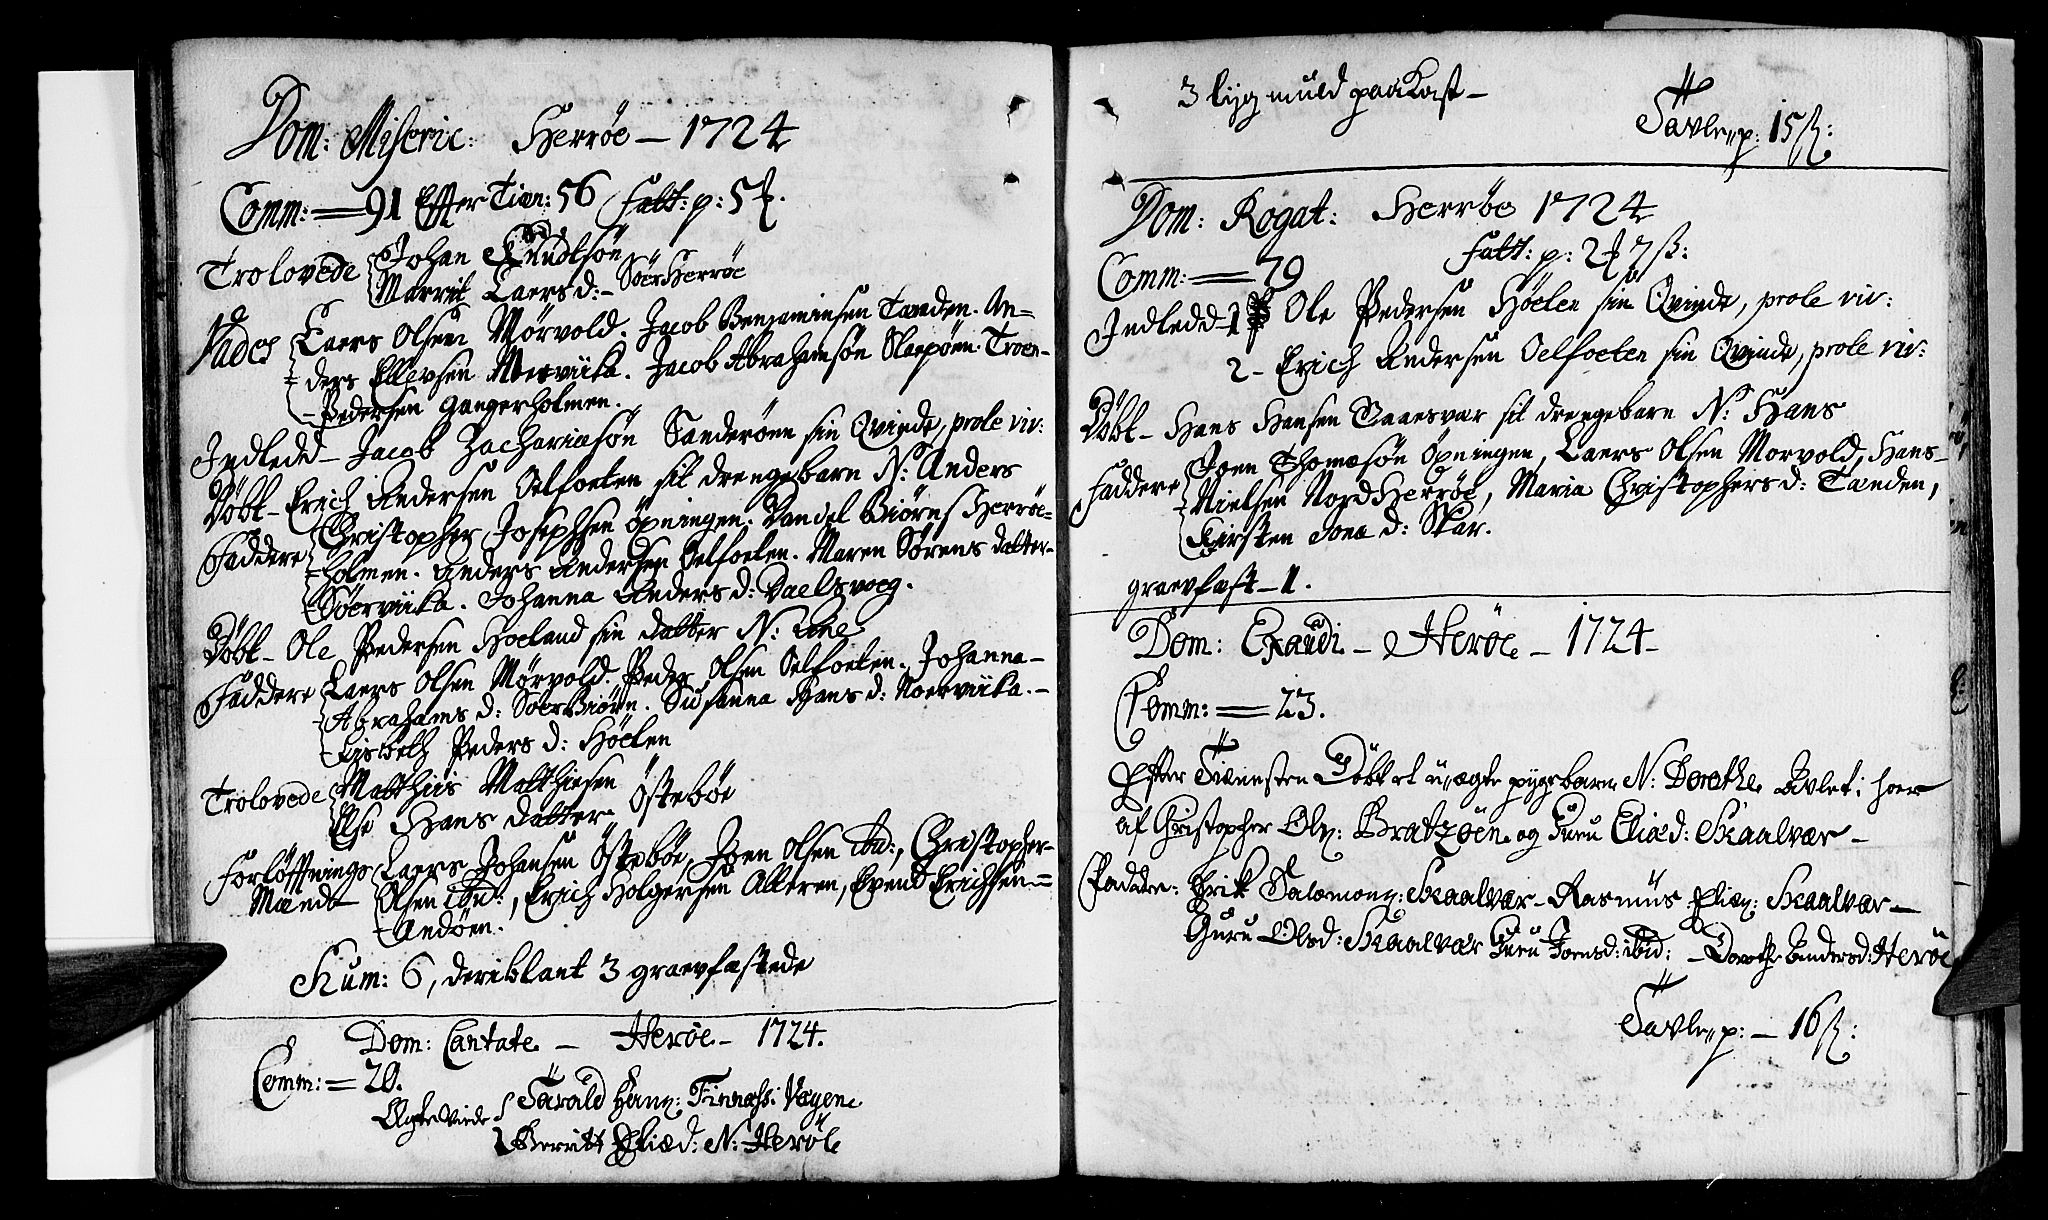 Dom: Miseric: Herröe — 1724
Comm: = 91 Effter Tien: 56 fatt: p: 5
Trolovede Johan Knudtsön
Marrit Laers d: – Söer Herröe
Vades Laers Olsen Mörvold. Jacob Benjaminsen Tænden. An=
ders Ellevsen Noerviika. Jacob Abrahamsön Slaepöen. Troen-
– Pedersen Gangerholmen.
Indledd – Jacob Zachariæsön Sanderöen sin Qvinde, prole vir:
Döbt – Erich Andersen Oelfoeten sit drengebarn N: Anders
Christopher Josephsen Öpningen. Dandel Biörns Herröe=
Faddere holmen. Anders Andersen Oelfoeten. Maren Sörens datter-
Söerviika. Johanna Anders d: Daelsvoeg.
Döbt – Ole Pedersen Hoeland sin datter N: Lene
Faddere Laers Olsen Mörvold. Peder Olsen Oelfoeten. Johanna –
Abrahams d: Söer Biörn. Susanna Hans d: Noerviika. –
Lisbeth Peders d: Höelen
Trolovede Matthiis Matthiesen
Else Hans datter Östeböe
Forlöffnings Laers Johansen Östeböe, Joen Olsen ibd:, Christopher-
Mændt Olsen ibd:, Erich Holgersen Alteren, Evend Erichsen =
Andöen.
Skum: 6, deriblant 3 graevfæstede
Dom: Cantate – Heröe – 1724.
Comm: = 20.
Ægteviede Tarald Hans: Finnæss: Vægene
Berritt Eliæd: N: Heröe
3 liig muld paakast –
Tavlen p: 15 ß:
Dom: Rogat: Herröe 1724
fatt: p: 2 7 ß:
Comm: = 79
Indledd – 1 Ole Pedersen Höelen sin Qvinde, prole vir:
2 – Erich Andersen Oelfoeten sin Qvinde, prole vir:
Döbt – Hans Hansen Taaesvær sit drengebarn N: Hans
Joen Thomæsön Öpningen, Laers Olsen Morvold, Hans –
Faddere Nielsen Nord Herröe, Maria Christophers d: Tænden,
Kirsten Jone d: Skar.
graevfæst – 1.
Dom: Exaudi – Heröe – 1724 –
Comm: = 23.
Efter Tienesten Döbt et uægte pigebarn N: Dorothe Avlet i hoer
af Christopher Ols: Bratzöen og Guru Eliæd: Skaalvær –
Faddere: Erik Salomons: Skaalvær – Rasmus Elies: Skaalvær –
Guru Olsd: Skaalvær Guru Joensd: ibid: – Dorothe Andersd: Heröe
Tavlen p: – 16 ß: